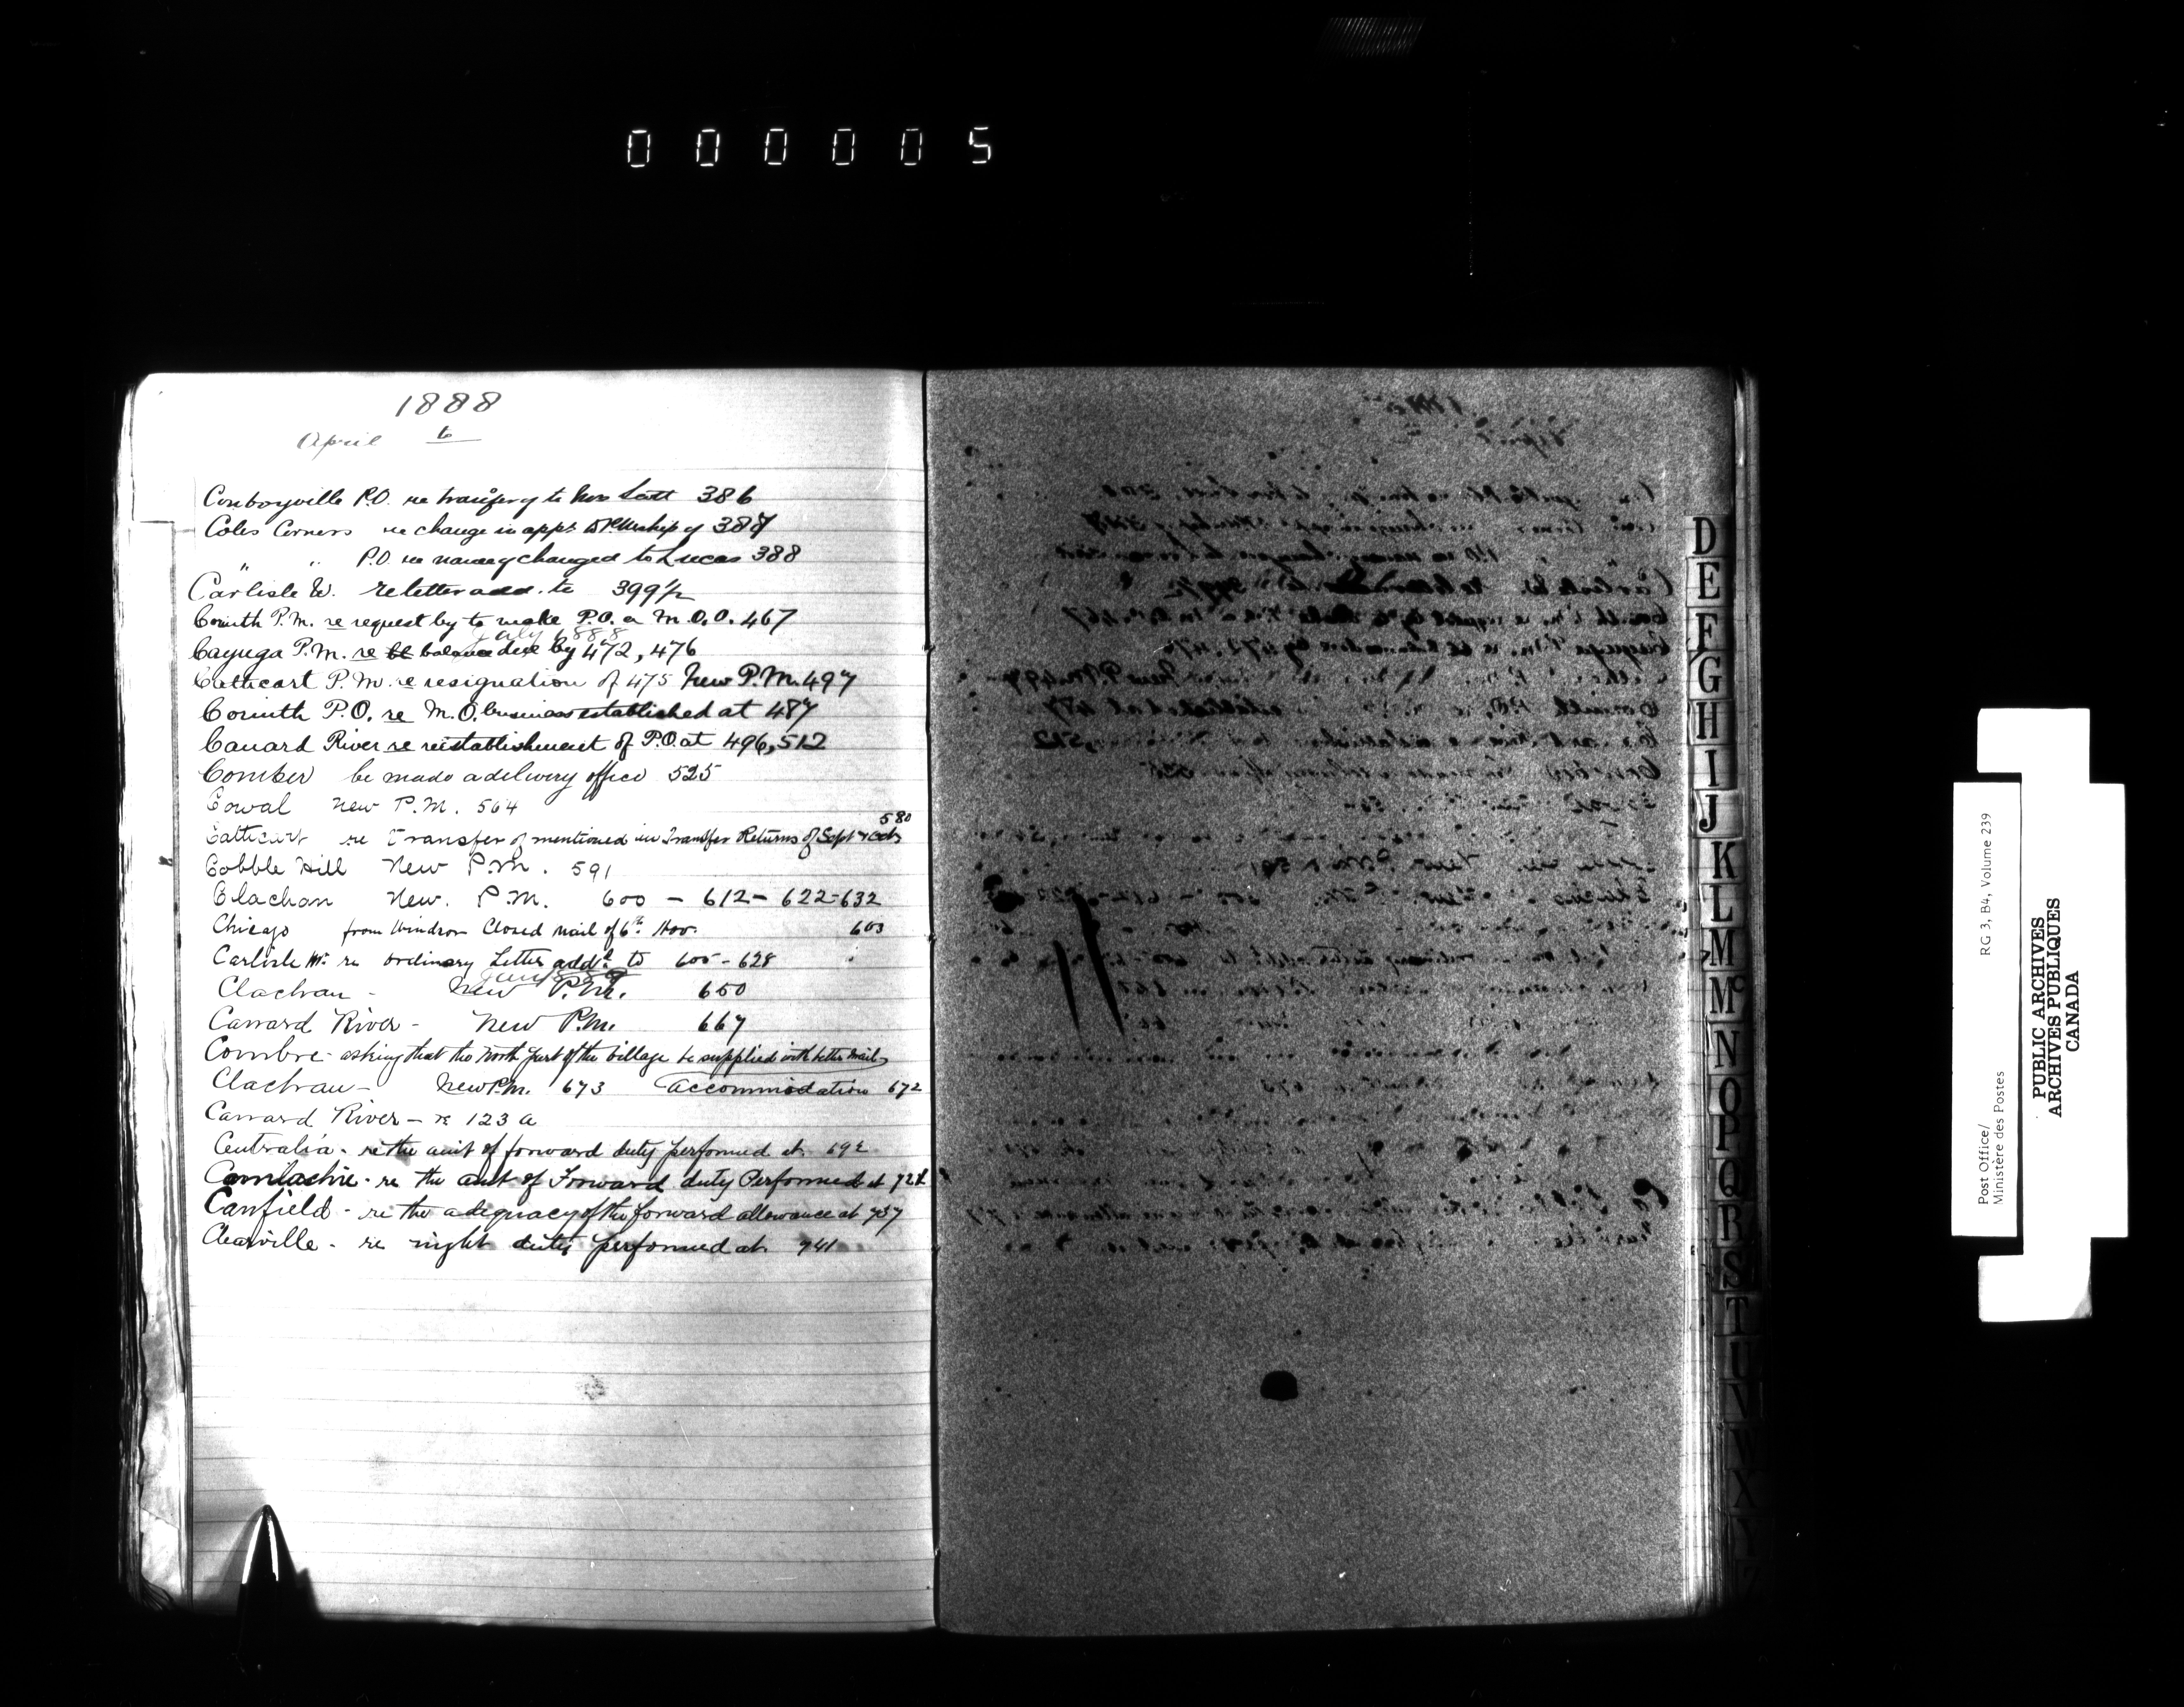 000005
1888
April to
Conboyville P.O. re transfer of to Mrs Scott 386
Coles Corners re change in appt to PMship of 387
" " P.O. re name of changed to Lucas 388
Carlisle W. re letter add. to 399½
Corinth P.M. re request by to make P.O. a M.O.O. 467
July 1888
Cayuga P.M. re balance due by 472, 476
Cathcart P.M. re resignation of 475 New P.M. 497
Corinth P.O. re M.O. business established at 487
Canard River re reistablishment of P.O. at 496, 512
Comber be made a delivery office 525
Cowal new P.M. 564
580
Cathcart re transfer of mentioned in Transfer Returns of Sept & Oct
Cobble Hill New P.M. 591
Clachan New. P.M. 600 - 612 - 622 - 632
Chicago from Windsor Closed mail of 6th Nov. 603
Carlisle Wm re ordinary Letter addd to 605 - 628
Jany 1889
Clachan - New P.M. 650
Canard River - New P.M. 667
Combre - asking that the North part of the village be supplied with better mail
Clachan - New P.M. 673 accommodation 672
Canard River - re 123 a
Centralia - re the amt of forward duty performed at 692
Camlachie - re the amt of Forward duty Performed at
Canfield - re the adequacy of the forward allowance at 737
Clearville - re night duty performed at 741
D
E
F
G
H
I
J
K
L
M
Mc
N
O
P
Q
R
S
T
U
V
W
X
Y
Z
Post Office/ RG 3, B4, Volume 239
Ministère des Postes
PUBLIC ARCHIVES
ARCHIVES PUBLIQUES
CANADA